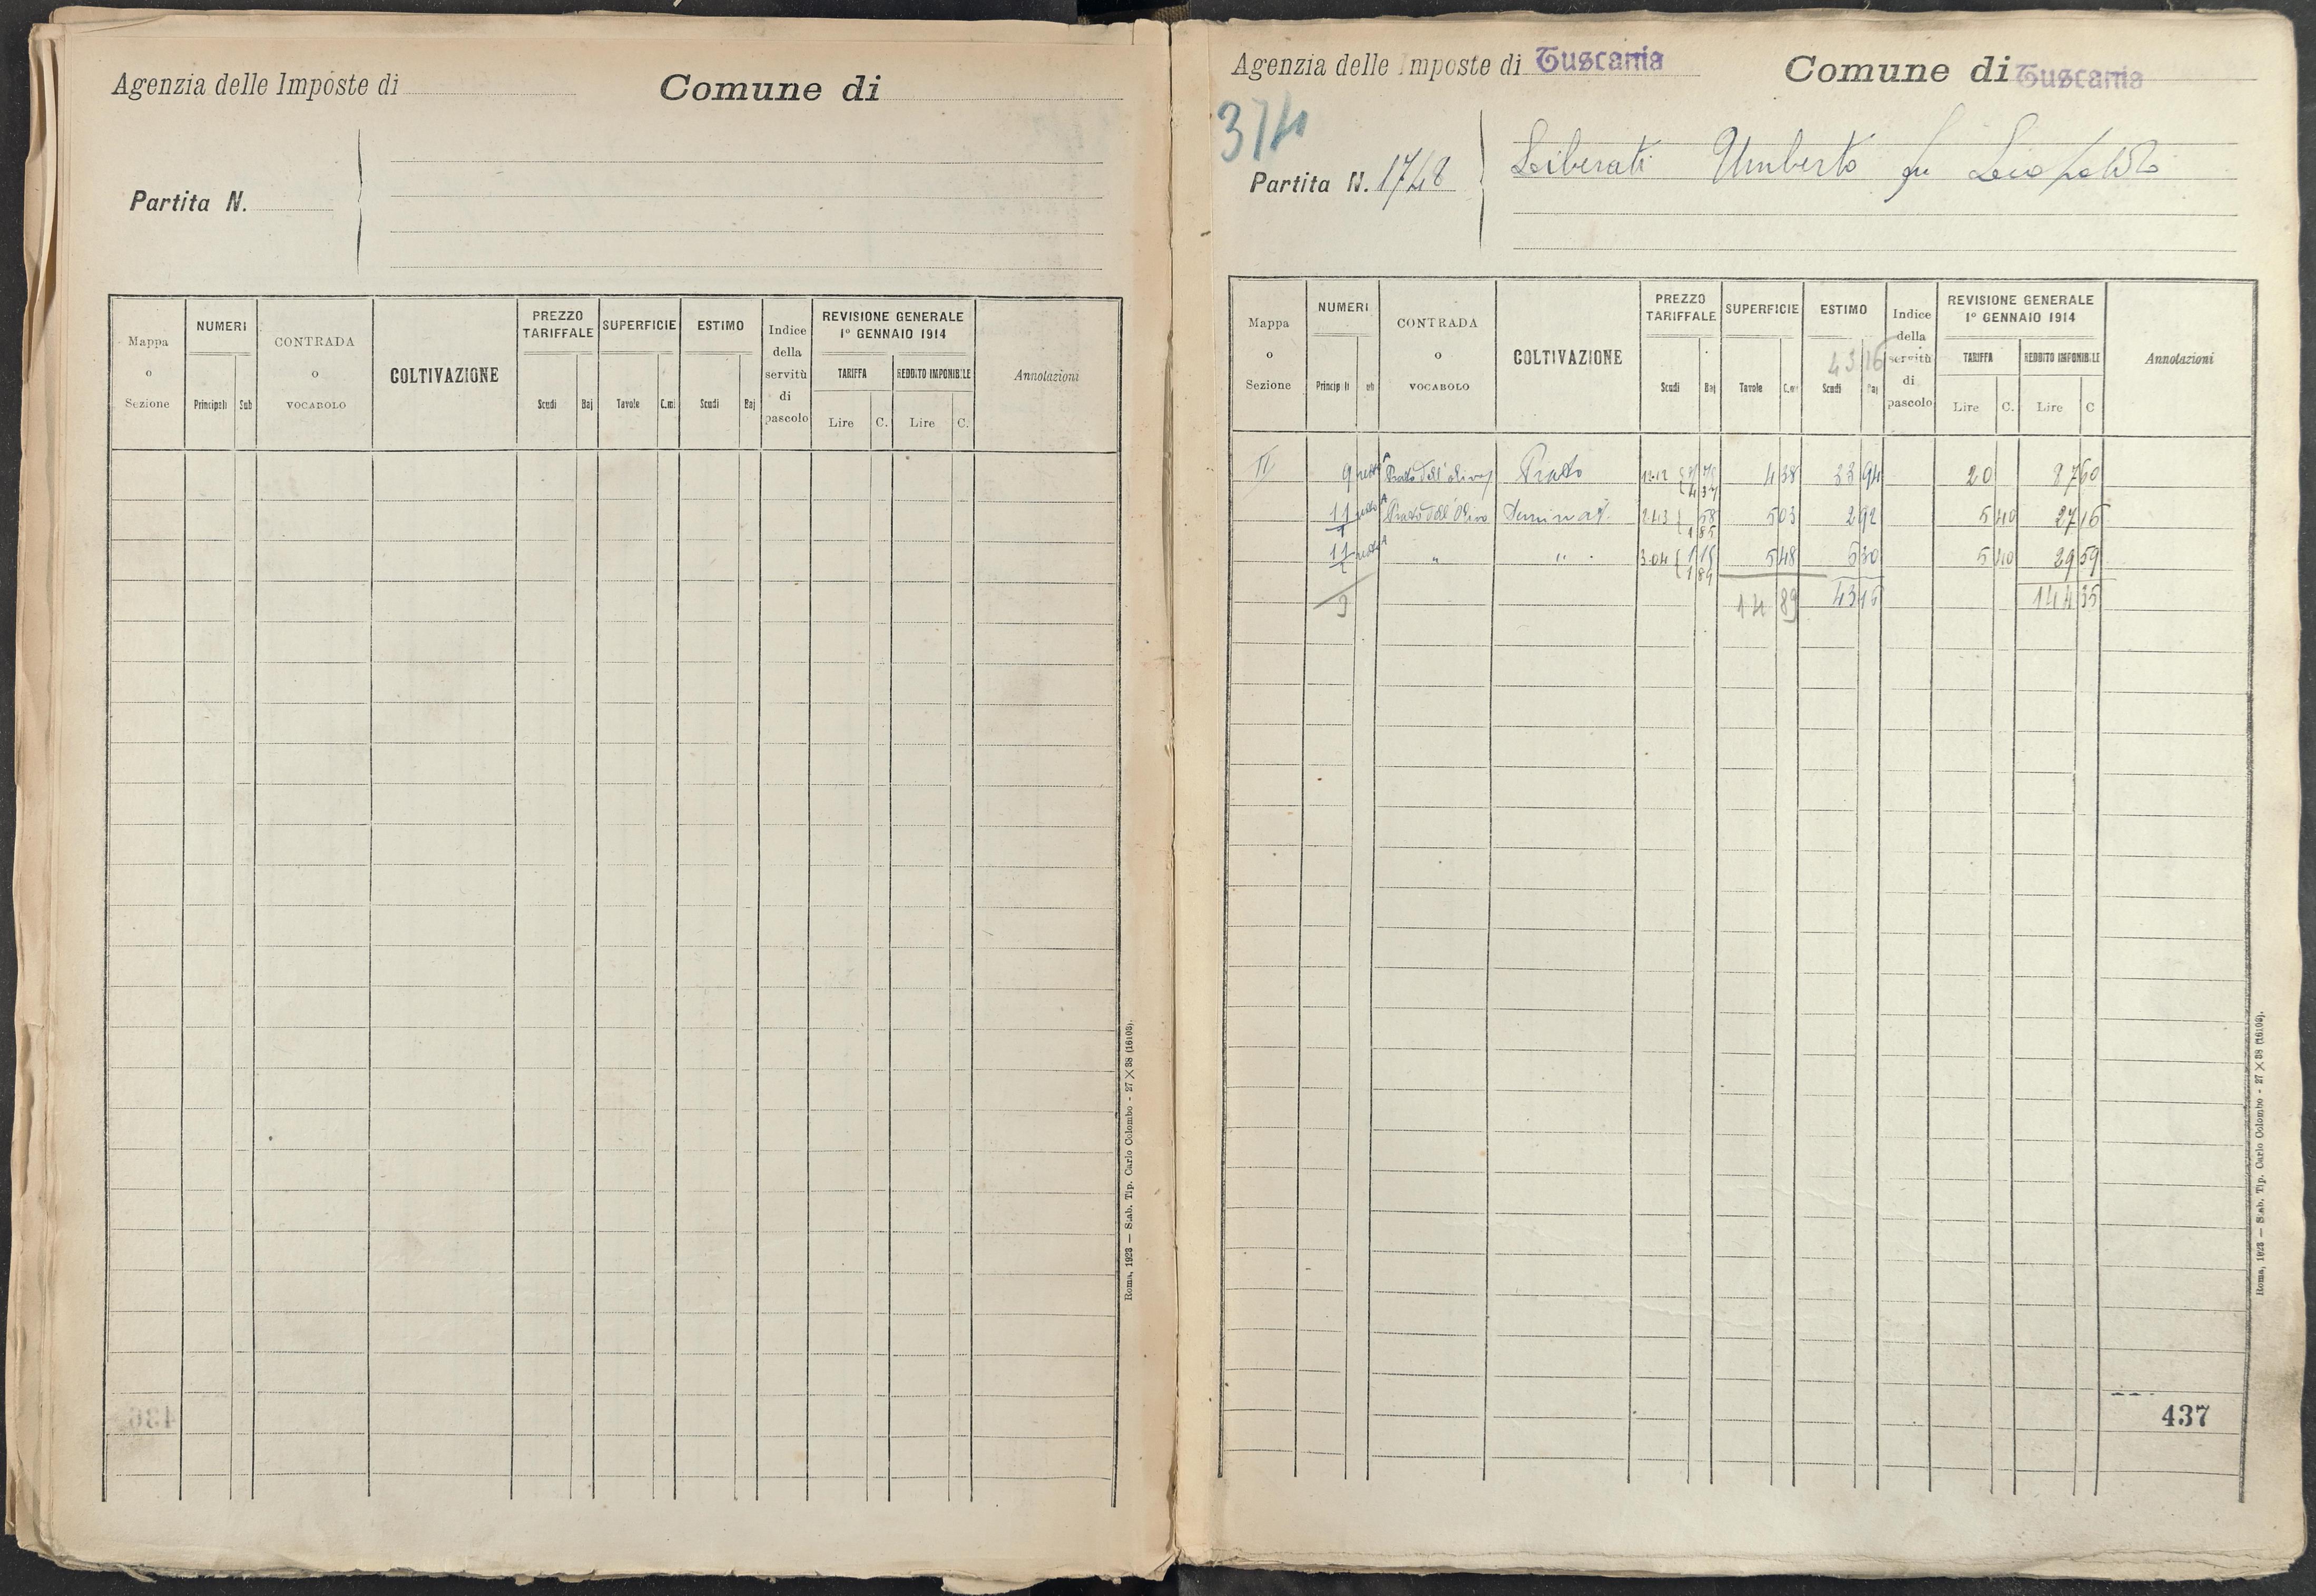 Agenzia delle Imposte di
Comune di
Partita N.
Mappa o Sezione
NUMERI
Principali Sub
CONTRADA o VOCABOLO
COLTIVAZIONE
PREZZO TARIFFALE
Scudi Baj
SUPERFICIE
Tavole C.mi
ESTIMO
Scudi Baj
Indice della servitù di pascolo
REVISIONE GENERALE
1° GENNAIO 1914
TARIFFA REDDITO IMPONIBILE
Lire C. Lire C.
Annotazioni
Roma, 1923 — Stab. Tip. Carlo Colombo - 27 X 38 (16103).
436
Agenzia delle Imposte di Tuscania
Comune di Tuscania
374
Partita N. 1748
Liberati Umberto fu Leopoldo
Mappa o Sezione
NUMERI
Principali Sub
CONTRADA o VOCABOLO
COLTIVAZIONE
PREZZO TARIFFALE
Scudi Baj
SUPERFICIE
Tavole C.mi
ESTIMO
43 16
Scudi Baj
Indice della servitù di pascolo
REVISIONE GENERALE
1° GENNAIO 1914
TARIFFA REDDITO IMPONIBILE
Lire C. Lire C
Annotazioni
II 9 Prato dell'olivo Prato 12.12 4 38 33 94 20 87 60
11/1 Prato dell'Olivo Seminat. 2.43 58 1 85 5 03 2 92 5 40 27 16
11/2 " " 3.04 1 15 1 84 5 48 6 30 5 40 29 59
3 14 89 43 16 144 35
437
Roma, 1923 — Stab. Tip. Carlo Colombo - 27 X 38 (16103).